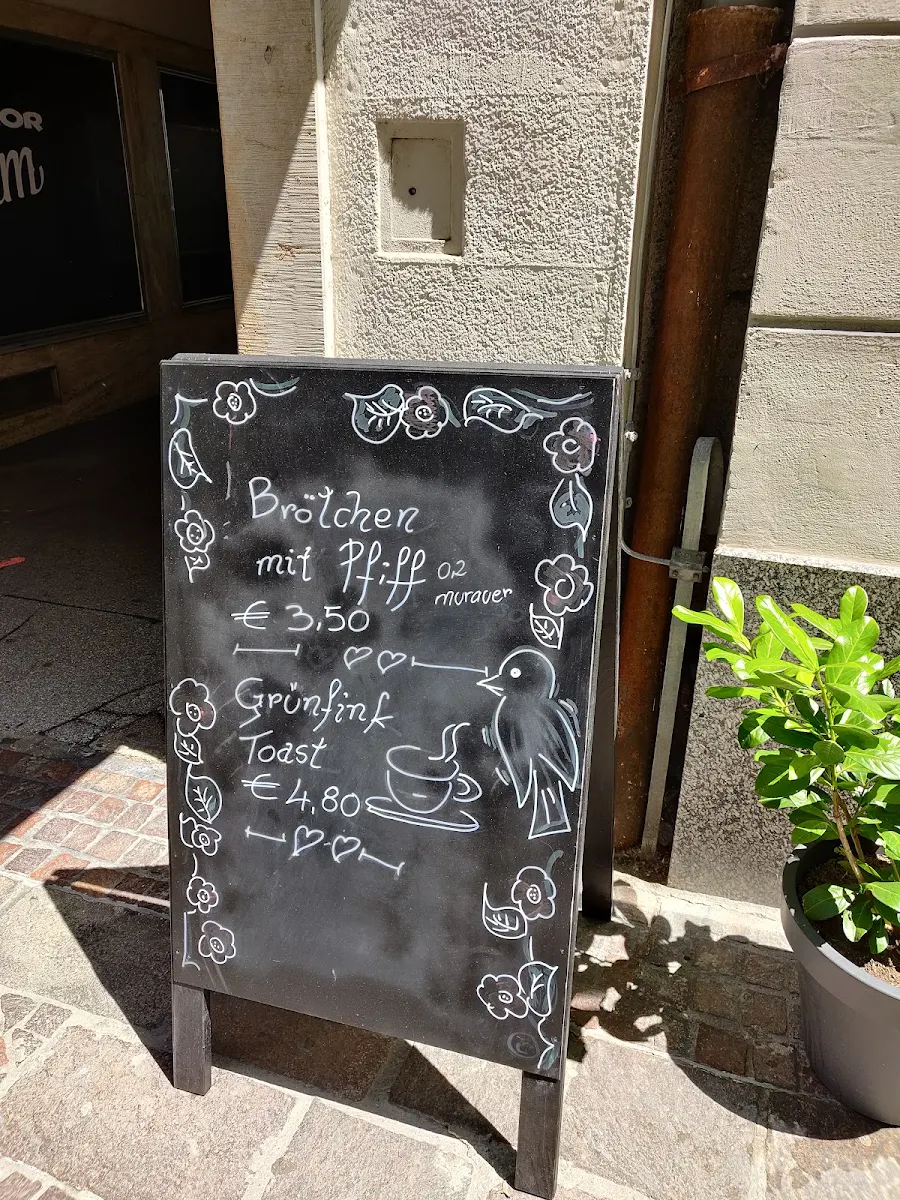 OR
m
Brötchen
mit Pfiff 0,2
murauer
€ 3,50
Grünfink
Toast
€ 4,80